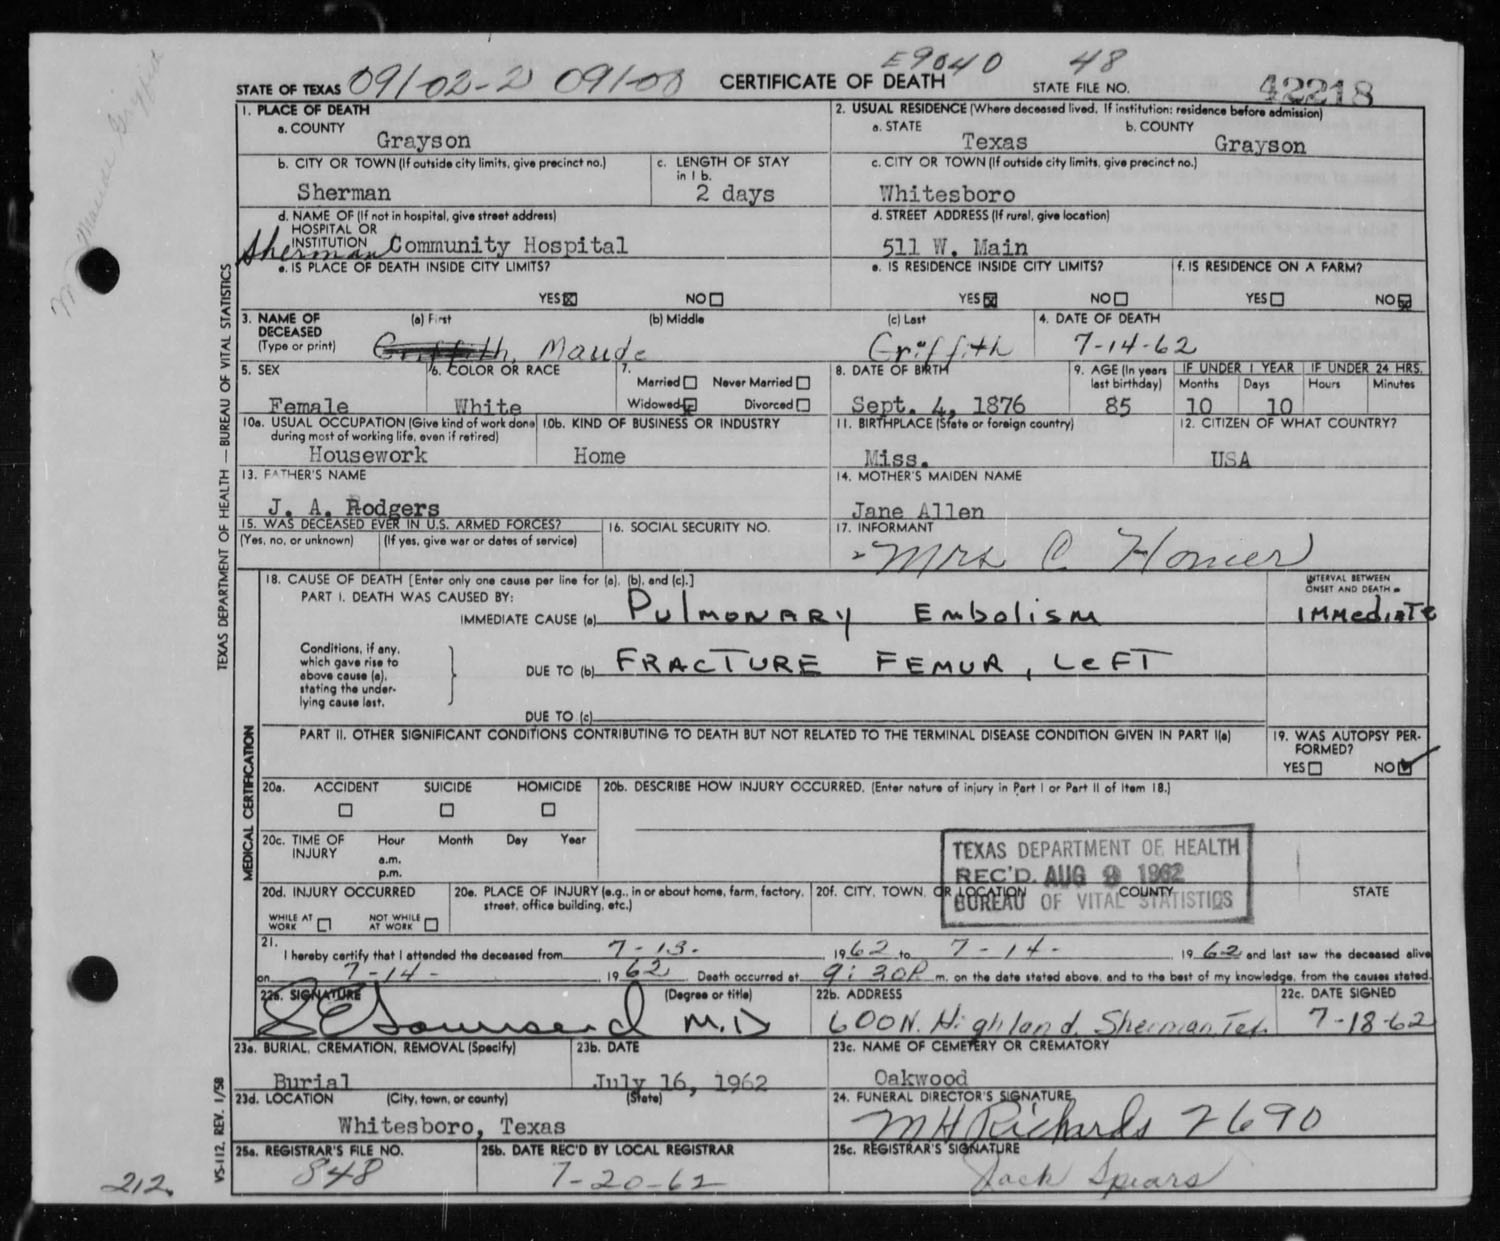 E9040 48
STATE OF TEXAS 09102-2 091-00 CERTIFICATE OF DEATH STATE FILE NO. 42218
1. PLACE OF DEATH
a. COUNTY
Grayson
2. USUAL RESIDENCE (Where deceased lived. If institution: residence before admission)
a. STATE Texas b. COUNTY Grayson
b. CITY OR TOWN (If outside city limits, give precinct no.)
Sherman
c. LENGTH OF STAY in 1 b.
2 days
c. CITY OR TOWN (If outside city limits, give precinct no.)
Whitesboro
d. NAME OF (If not in hospital, give street address)
HOSPITAL OR
INSTITUTION
Sherman Community Hospital
d. STREET ADDRESS (If rural, give location)
511 W. Main
e. IS PLACE OF DEATH INSIDE CITY LIMITS?
YES☒ NO☐
e. IS RESIDENCE INSIDE CITY LIMITS?
YES☒ NO☐
f. IS RESIDENCE ON A FARM?
YES☐ NO☒
3. NAME OF DECEASED
(Type or print)
(a) First (b) Middle (c) Last
Griffith, Maude Griffith
4. DATE OF DEATH
7-14-62
5. SEX
Female
6. COLOR OR RACE
White
7.
Married☐ Never Married☐
Widowed☒ Divorced☐
8. DATE OF BIRTH
Sept. 4, 1876
9. AGE (In years last birthday)
85
IF UNDER 1 YEAR
Months Days
10 10
IF UNDER 24 HRS.
Hours Minutes
10a. USUAL OCCUPATION (Give kind of work done
during most of working life, even if retired)
Housework
10b. KIND OF BUSINESS OR INDUSTRY
Home
11. BIRTHPLACE (State or foreign country)
Miss.
12. CITIZEN OF WHAT COUNTRY?
USA
13. FATHER'S NAME
J. A. Rodgers
14. MOTHER'S MAIDEN NAME
Jane Allen
15. WAS DECEASED EVER IN U.S. ARMED FORCES?
(Yes, no, or unknown) (If yes, give war or dates of service)
16. SOCIAL SECURITY NO.
17. INFORMANT
Mrs C Homer
18. CAUSE OF DEATH [Enter only one cause per line for (a), (b), and (c).]
INTERVAL BETWEEN
ONSET AND DEATH
PART I. DEATH WAS CAUSED BY:
IMMEDIATE CAUSE (a) Pulmonary Embolism Immediate
Conditions, if any,
which gave rise to
above cause (a),
stating the under-
lying cause last.
DUE TO (b) FRACTURE FEMUR, LEFT
DUE TO (c)
PART II. OTHER SIGNIFICANT CONDITIONS CONTRIBUTING TO DEATH BUT NOT RELATED TO THE TERMINAL DISEASE CONDITION GIVEN IN PART I(a)
19. WAS AUTOPSY PER-
FORMED?
YES☐ NO☑
20a. ACCIDENT SUICIDE HOMICIDE
☐ ☐ ☐
20b. DESCRIBE HOW INJURY OCCURRED. (Enter nature of injury in Part I or Part II of Item 18.)
20c. TIME OF INJURY
Hour Month Day Year
a.m.
p.m.
TEXAS DEPARTMENT OF HEALTH
REC'D. AUG 9 1962
BUREAU OF VITAL STATISTICS
20d. INJURY OCCURRED
WHILE AT WORK ☐ NOT WHILE AT WORK ☐
20e. PLACE OF INJURY (e.g., in or about home, farm, factory,
street, office building, etc.)
20f. CITY, TOWN, OR LOCATION COUNTY STATE
21.
I hereby certify that I attended the deceased from 7-13- 1962 to 7-14- 1962 and last saw the deceased alive
on 7-14- 1962 Death occurred at 9:30P m. on the date stated above, and to the best of my knowledge, from the causes stated.
22a. SIGNATURE (Degree or title)
Townsend M.D
22b. ADDRESS
600 N. Highland, Sherman, Tex.
22c. DATE SIGNED
7-18-62
23a. BURIAL, CREMATION, REMOVAL (Specify)
Burial
23b. DATE
July 16, 1962
23c. NAME OF CEMETERY OR CREMATORY
Oakwood
23d. LOCATION (City, town, or county) (State)
Whitesboro, Texas
24. FUNERAL DIRECTOR'S SIGNATURE
MH Richards 2690
25a. REGISTRAR'S FILE NO.
848
25b. DATE REC'D BY LOCAL REGISTRAR
7-20-62
25c. REGISTRAR'S SIGNATURE
Jack Spears
TEXAS DEPARTMENT OF HEALTH — BUREAU OF VITAL STATISTICS
MEDICAL CERTIFICATION
VS-112, REV. 1/58
212